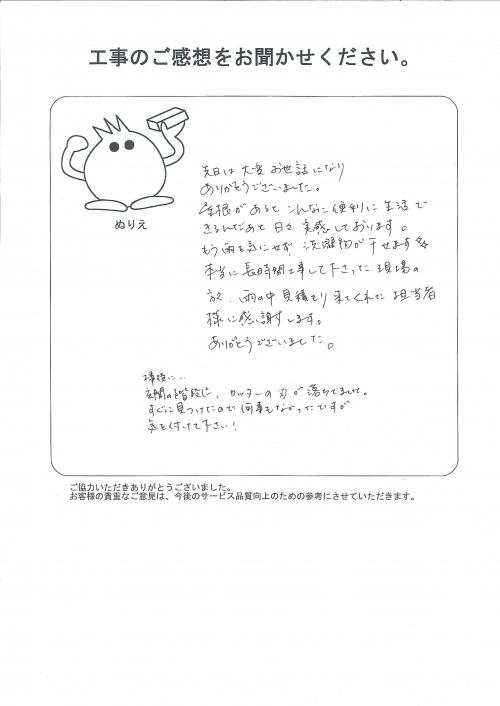 工事のご感想をお聞かせください。
ぬりえ
先日は大変お世話になり
ありがとうございました。
屋根があるとこんなに便利に生活で
きるんだあと日々実感しております。
もう雨を気にせず、洗濯物が干せます☆
本当に長時間工事して下さった現場の
方々、雨の中見積もり来てくれた担当者
様に感謝します。
ありがとうございました。
工事後に…
玄関の階段に、カッターの刃が落ちてました。
すぐに見つけたので何事もなかったですが
気を付けて下さい!
ご協力いただきありがとうございました。
お客様の貴重なご意見は、今後のサービス品質向上のための参考にさせていただきます。